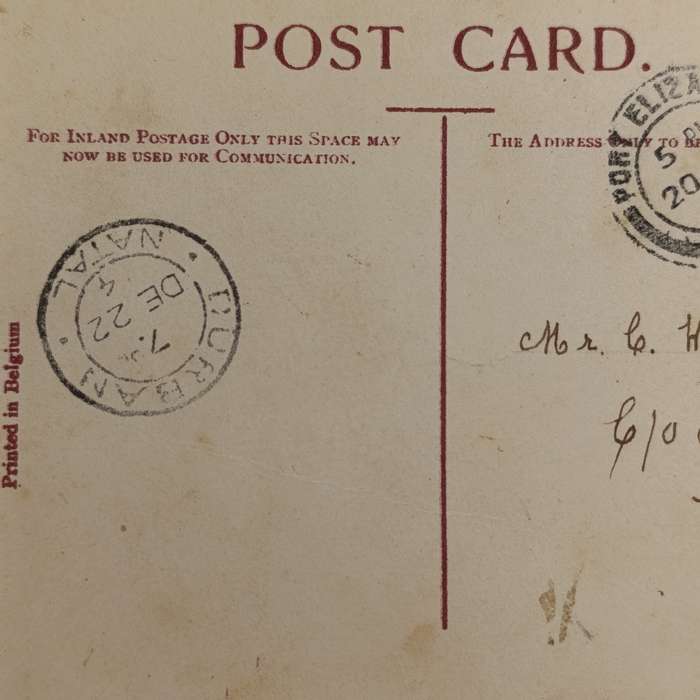 POST CARD.
FOR INLAND POSTAGE ONLY THIS SPACE MAY
NOW BE USED FOR COMMUNICATION.
THE ADDRESS ONLY TO BE
PORT ELIZA
5
20
DURBAN
NATAL
7.
DE 22
4
Mr. C.
C/o
Printed in Belgium